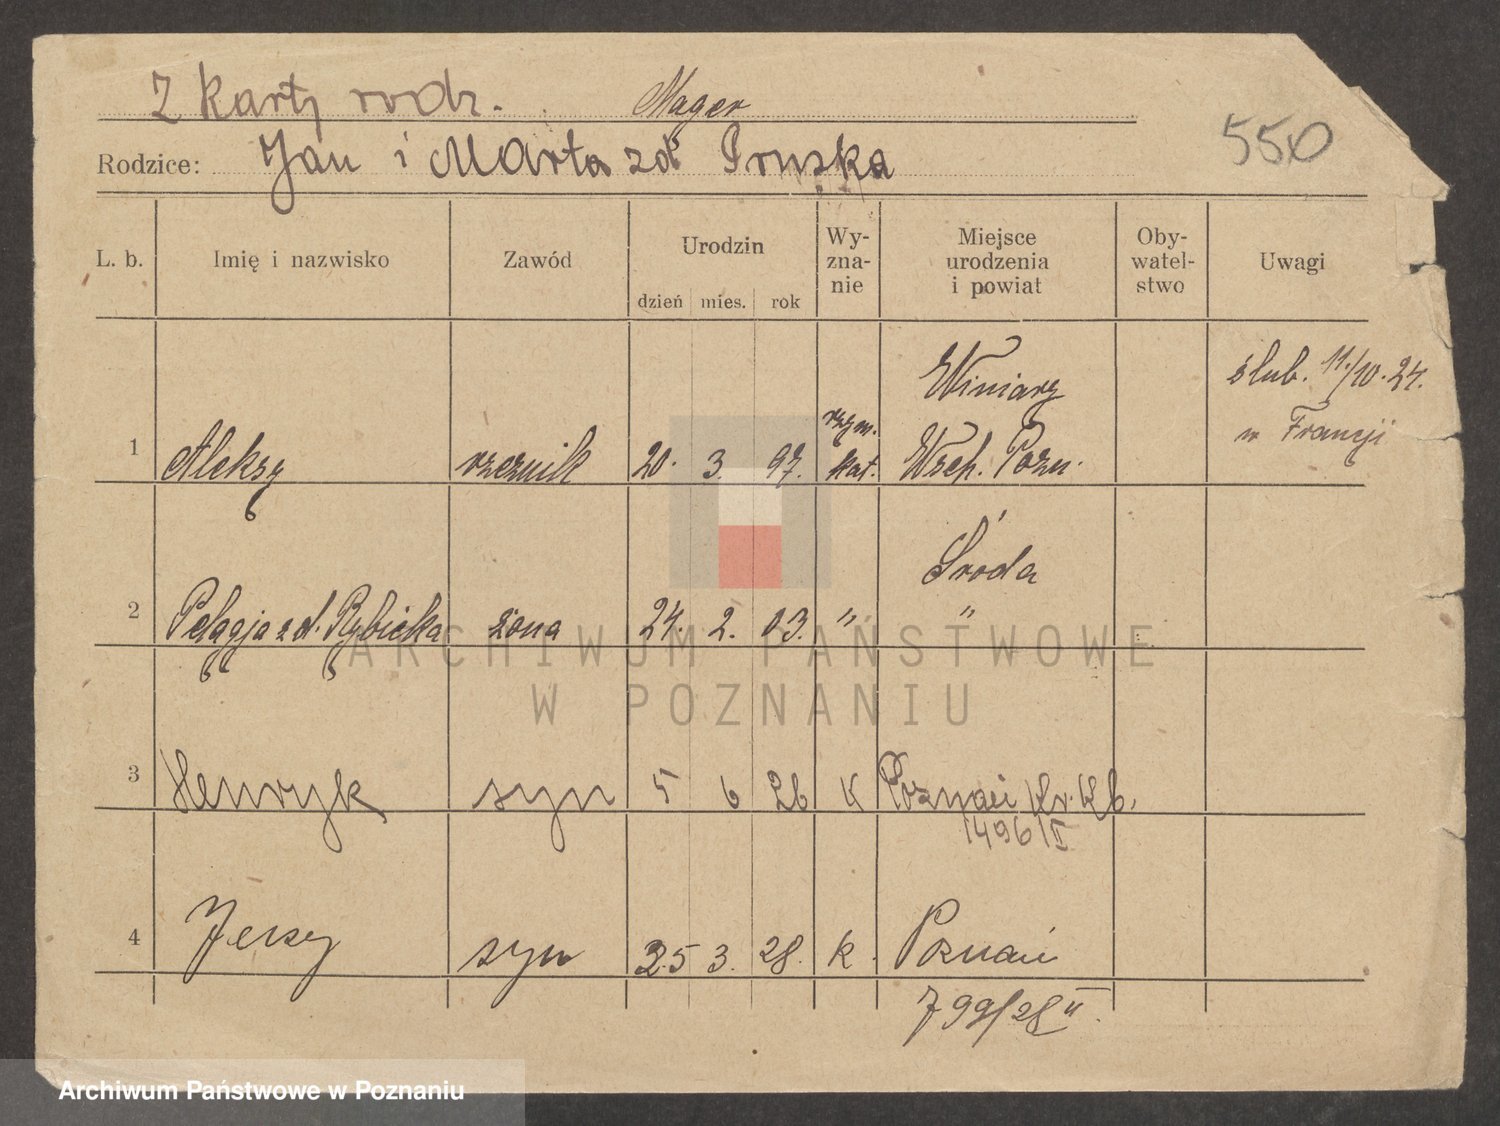 Z karty rodz. Mager
550
Rodzice: Jan i Marta zd Pruska
L. b. Imię i nazwisko Zawód Urodzin Wy-zna-nie Miejsce urodzenia i powiat Oby-watel-stwo Uwagi
dzień mies. rok
1 Aleksy rzeźnik 20. 3. 97. rzym. kat. Winiary Wsch. Pozn. ślub. 11./10. 24. w Francji
2 Pelagja zd. Rybicka żona 24. 2. 03. " Środa "
ARCHIWUM PAŃSTWOWE
W POZNANIU
3 Henryk syn 5 6 26 K Poznań
1496 II
4 Jerzy syn 25 3. 28. k. Poznań
799/28 II.
Archiwum Państwowe w Poznaniu